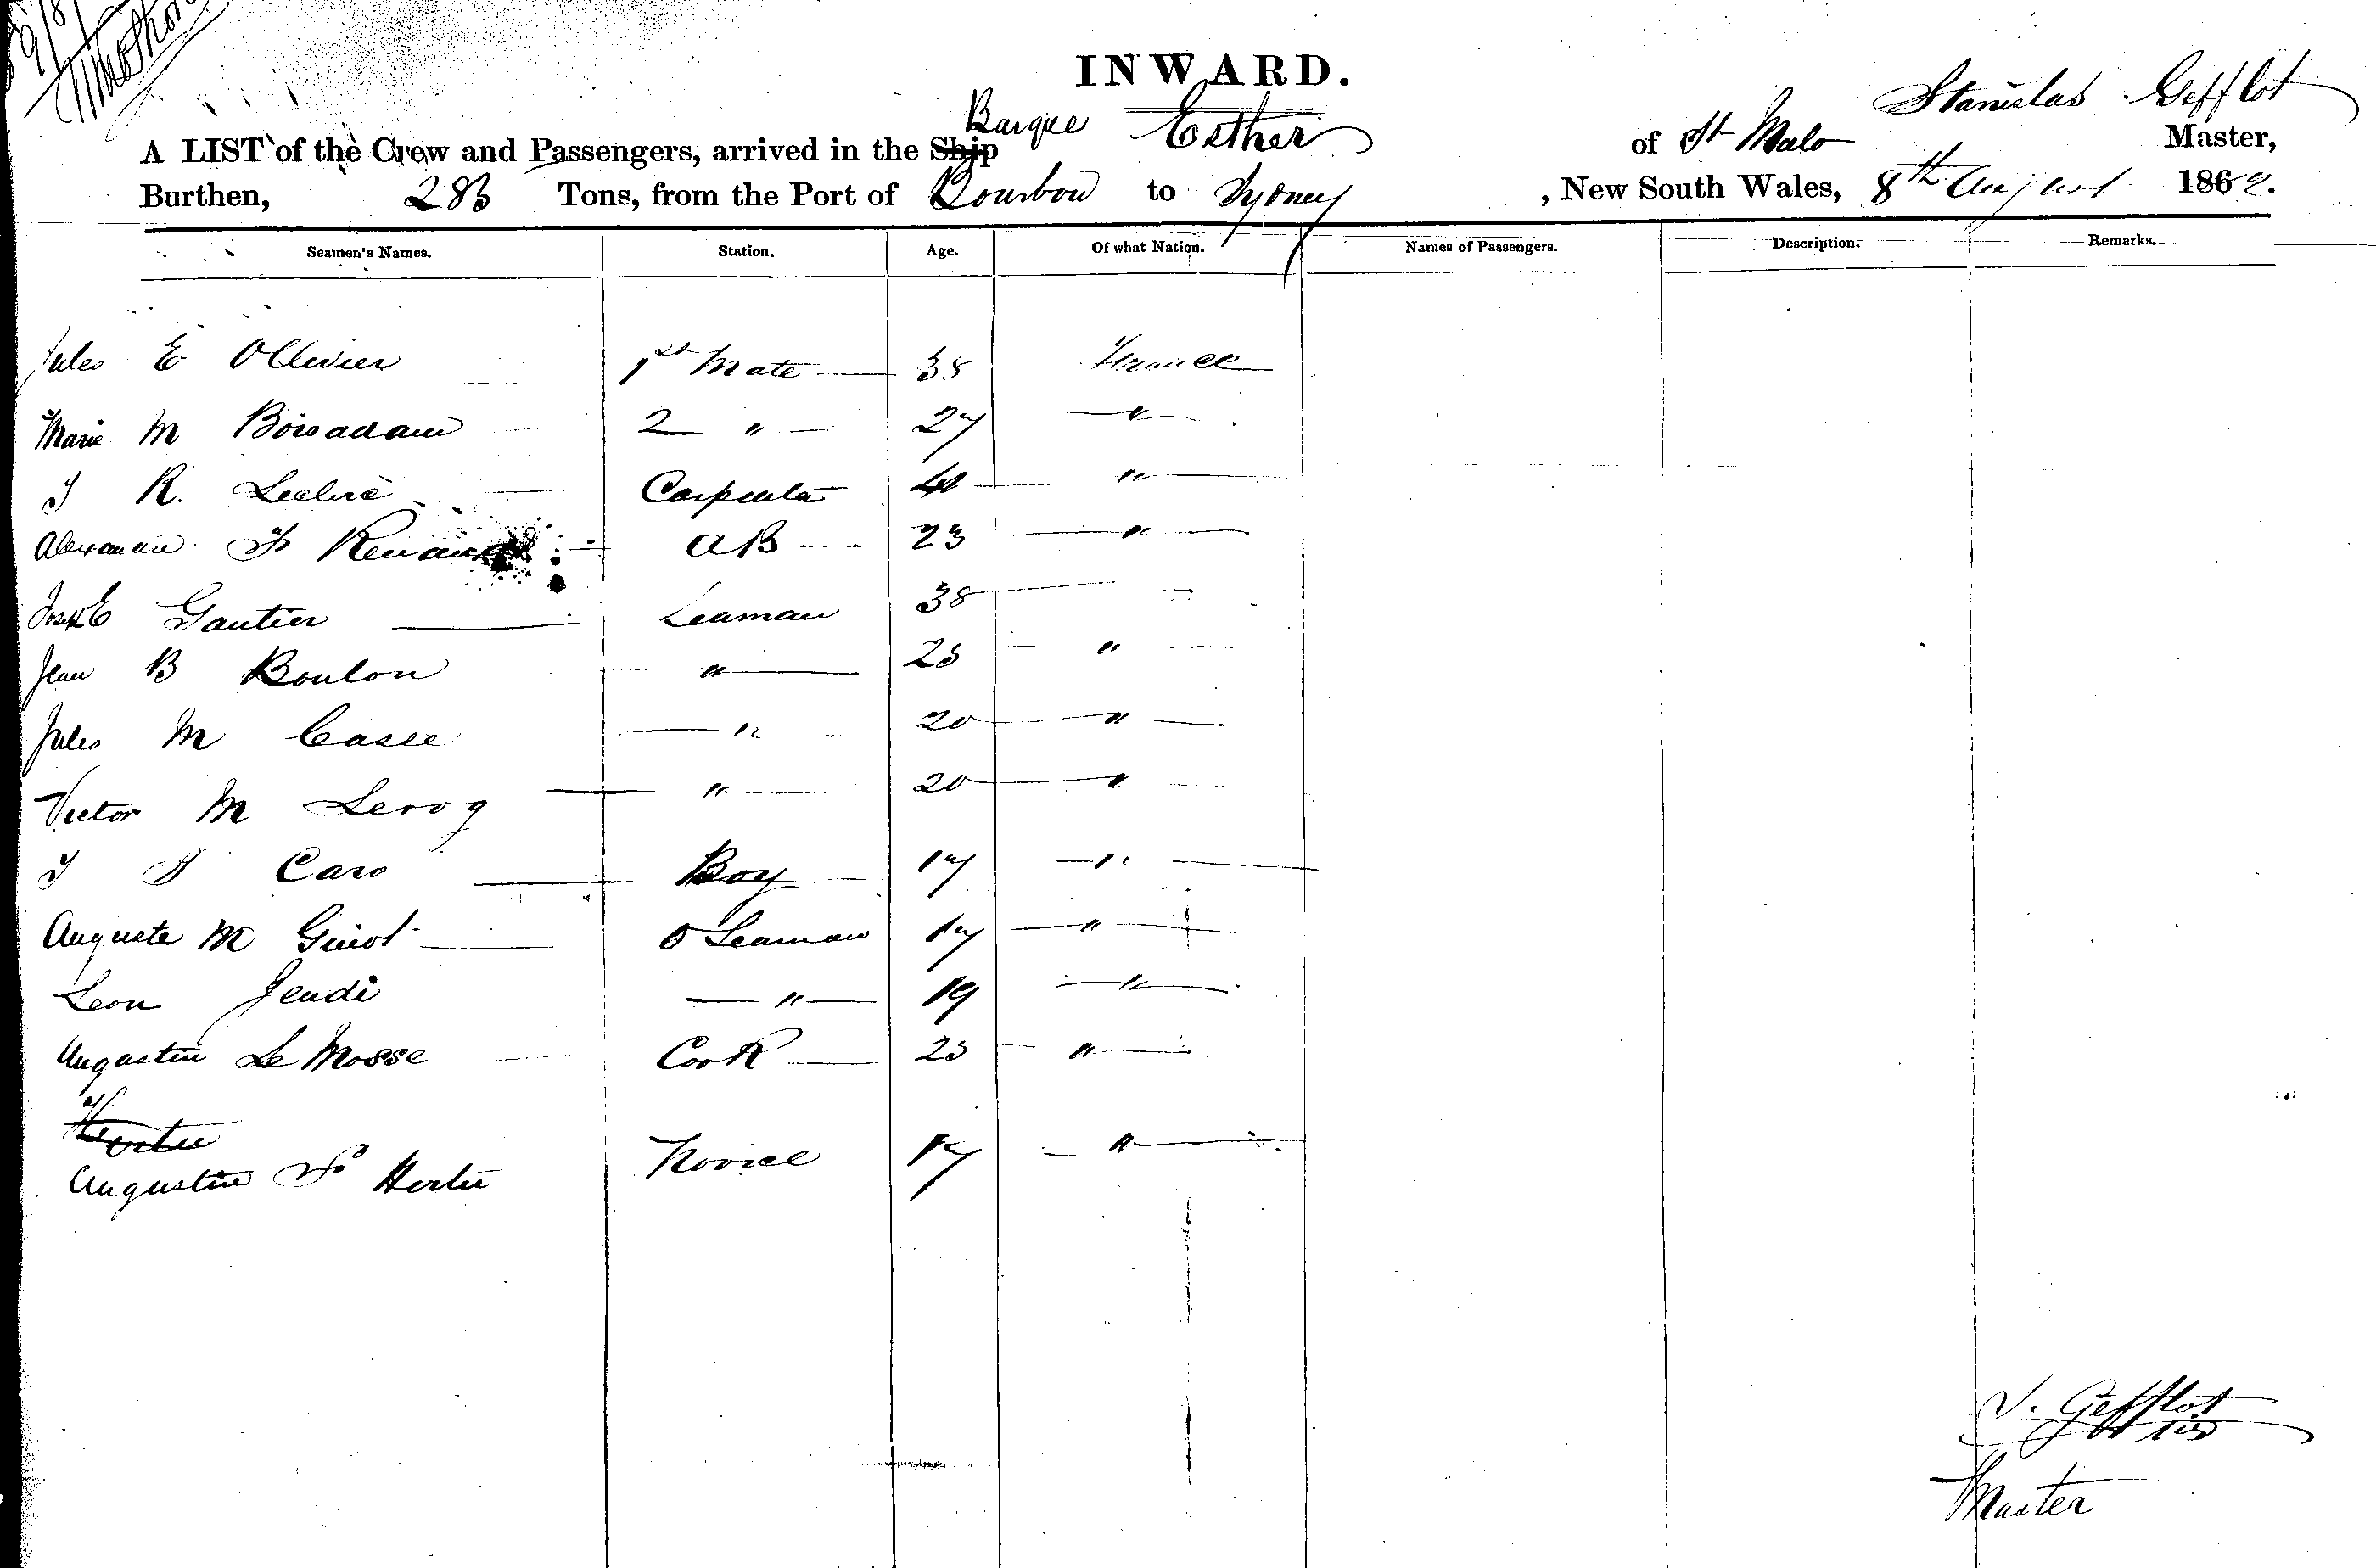 INWARD.
Stanislas Gefflot
Barque Esther
A LIST of the Crew and Passengers, arrived in the Ship of St Malo Master,
Burthen, 283 Tons, from the Port of Bourbon to Sydney, New South Wales, 8th August 1862.
Seamen's Names. Station. Age. Of what Nation. Names of Passengers. Description. Remarks.
Jules E Ollivier 1st Mate 35 France
Marie M Boisadam 2 " 27 "
J R. Leclerc Carpenter "
Alexandre F 	AB 23 "
Josh E Gautier Seaman 38 "
Jean B Boulon " 25 "
Jules M Casse " 20 "
Victor M Leroy " 20 "
J J Caro Boy 17 "
Auguste M Guiot O Seaman 17 "
Leon Jeudi " 19 "
Augustin Le Mosse Cook 23 "
Augustin F Hertu Novice 17 "
S. Gefflot
Master